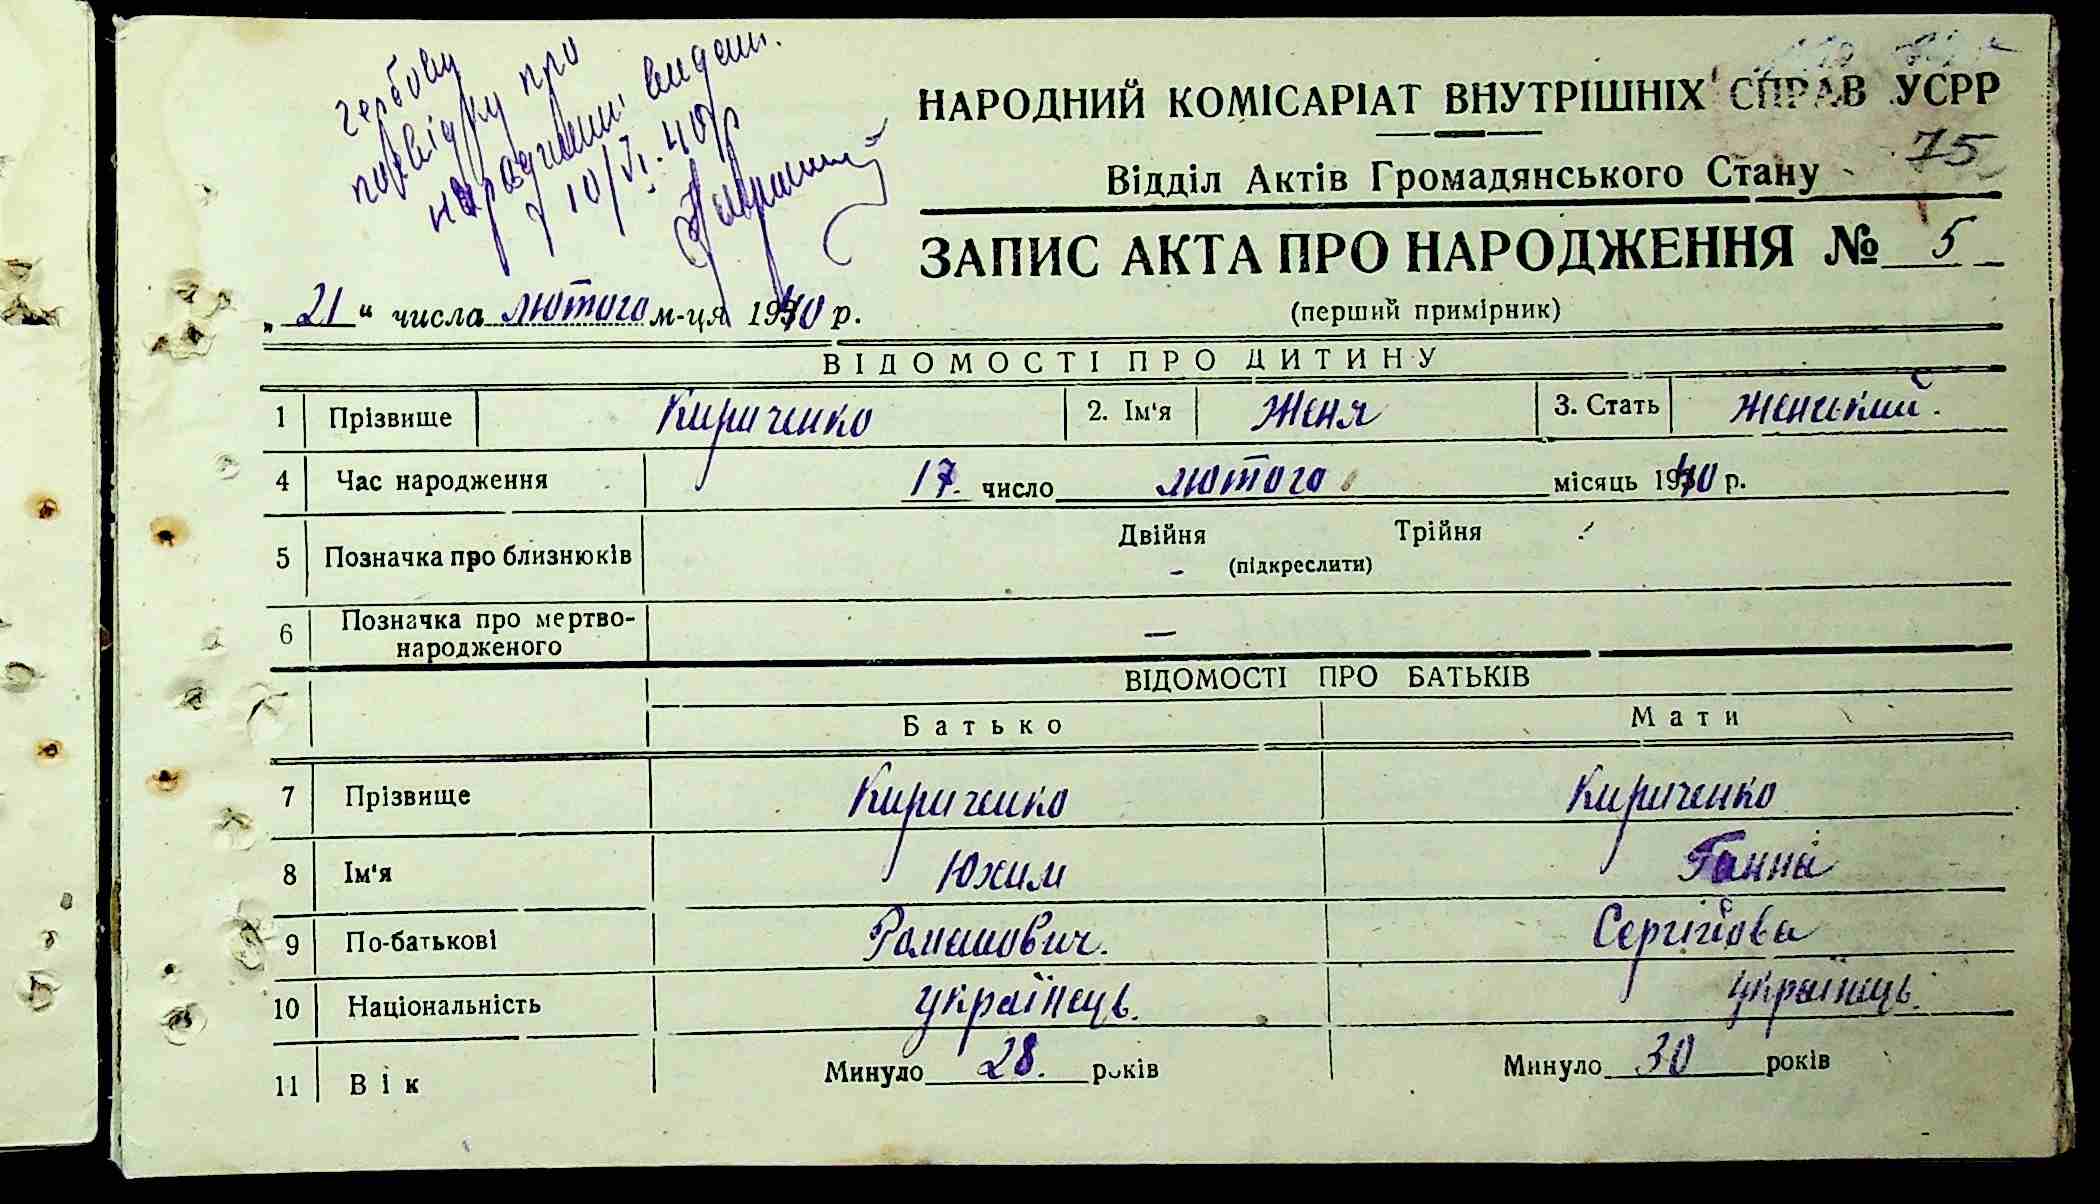 гербову
посвідку про
народження видан.
10/VI. 40 р
НАРОДНИЙ КОМІСАРІАТ ВНУТРІШНІХ СПРАВ УСРР
75
Відділ Актів Громадянського Стану
ЗАПИС АКТА ПРО НАРОДЖЕННЯ № 5
(перший примірник)
„21“ числа лютого м-ця 1940 р.
ВІДОМОСТІ ПРО ДИТИНУ
1 Прізвище Кириченко 2. Ім'я Женя 3. Стать женський.
4 Час народження 17. число лютого місяць 1940 р.
5 Позначка про близнюків Двійня Трійня
(підкреслити) -
6 Позначка про мертво-
народженого —
ВІДОМОСТІ ПРО БАТЬКІВ
Батько Мати
7 Прізвище Кириченко Кириченко
8 Ім'я Юхим Ганна
9 По-батькові Романович. Сергійова
10 Національність українець. українець.
11 Вік Минуло 28. років Минуло 30 років